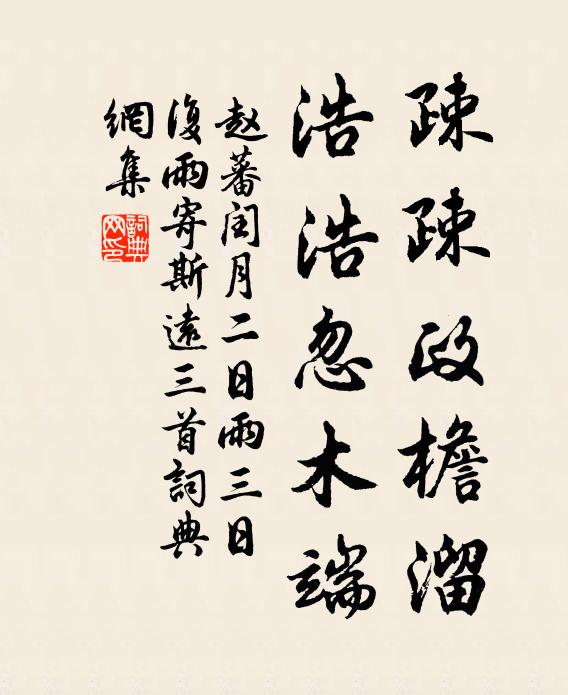 疎疎政檐溜
浩浩忽木端
赵蕃闰月二日雨三日
復雨寄斯遠三首詞典
網集
詞典网印